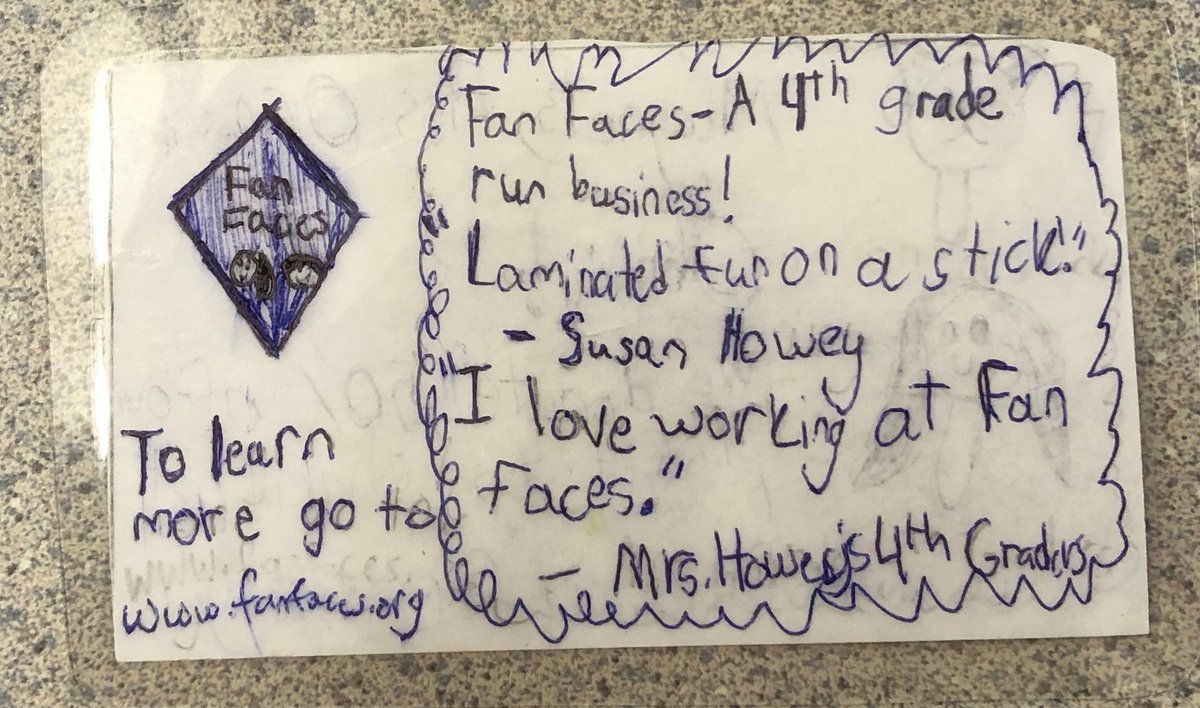 Fan
Faces
To learn
more go to
www.fanfaces.org
Fan Faces-A 4th grade
run business!
Laminated fun on a stick!"
- Susan Howey
"I love working at Fan
Faces."
- Mrs. Howey's 4th Graders